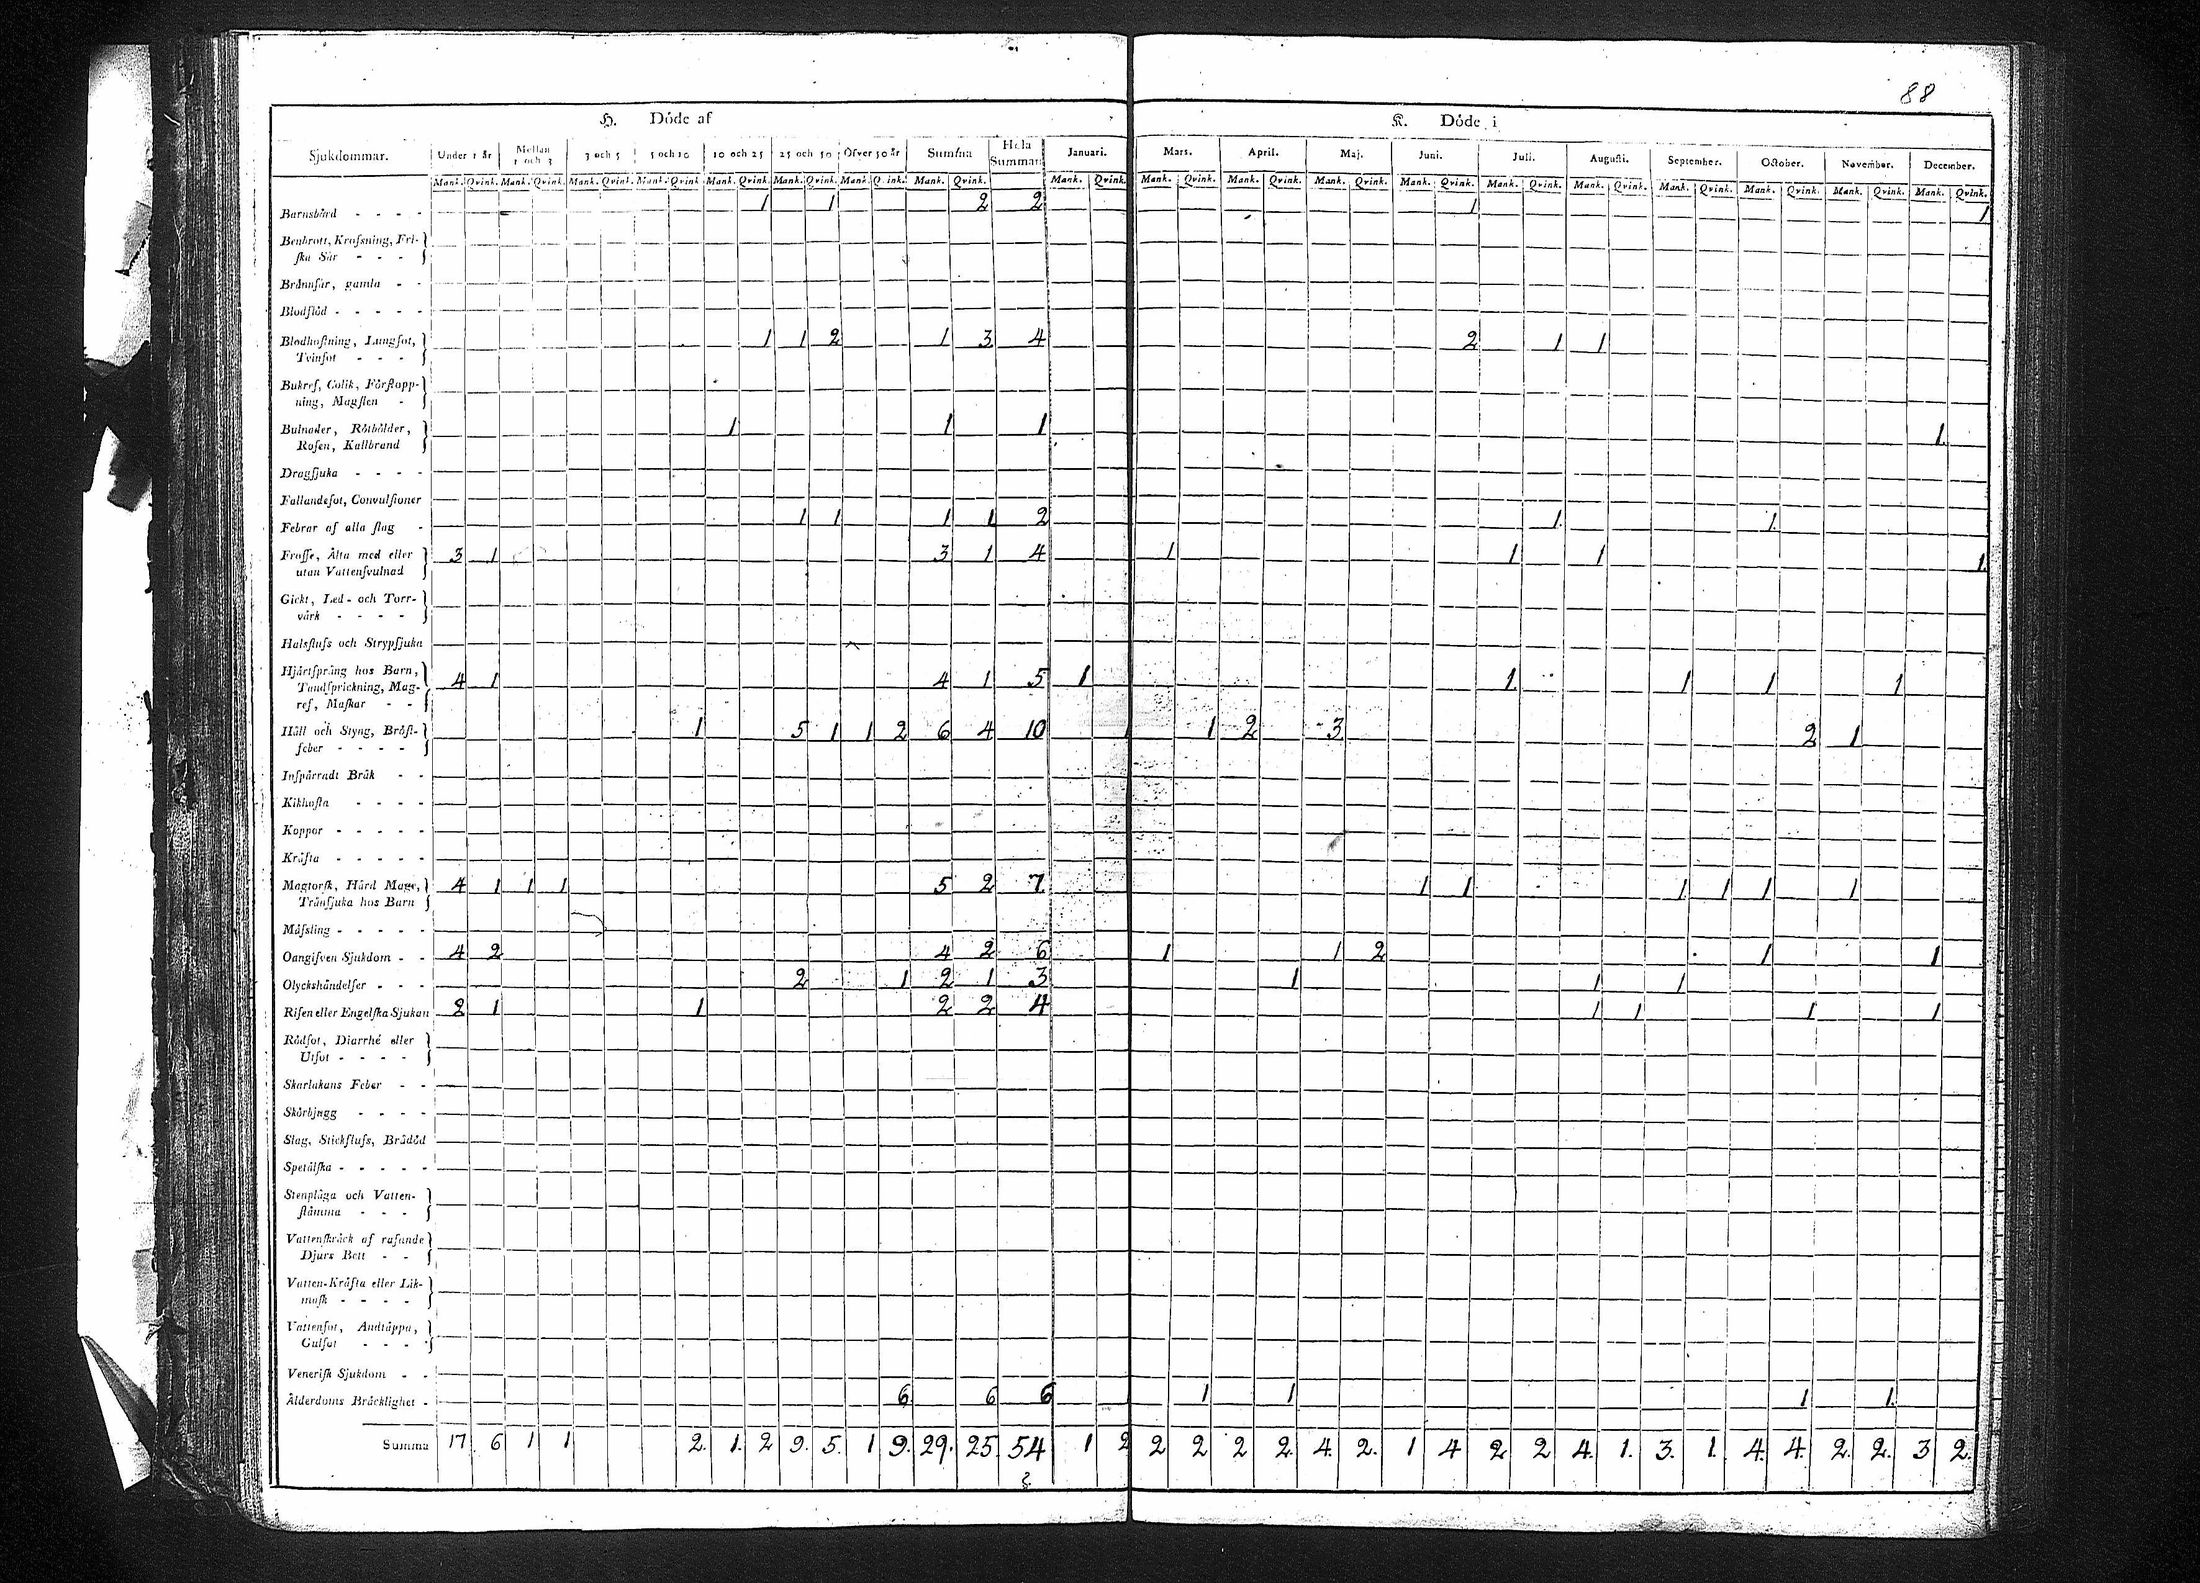 88
H. Döde af K. Döde i
Sjukdommar. Under 1 år Mellan 1 och 3 3 och 5 5 och 10 10 och 25 25 och 50 Öfver 50 år Summa Hela Summan Januari. Mars. April. Maj. Juni. Juli. Augusti. September. October. November. December.
Mank. Qvink. Mank. Qvink. Mank. Qvink. Mank. Qvink. Mank. Qvink. Mank. Qvink. Mank. Qvink. Mank. Qvink. Mank. Qvink. Mank. Qvink. Mank. Qvink. Mank. Qvink. Mank. Qvink. Mank. Qvink. Mank. Qvink. Mank. Qvink. Mank. Qvink. Mank. Qvink. Mank. Qvink.
Barnsbörd - - - - 1 1 2 2 1 1
Benbrott, Krossning, Fri-
ska Sår - - -
Brännsår, gamla - -
Blodflöd - - - - -
Blodhostning, Lungsot, 1 1 2 1 3 4 2 1 1
Tvinsot - - -
Bukref, Colik, Förstopp-
ning, Magsten -
Bulnader, Rötbölder, 1 1 1 1
Rosen, Kallbrand
Dragsjuka - - - -
Fallandesot, Convulsioner
Febrar af alla slag - 1 1 1 1 2 1 1
Frosse, Älta med eller 3 1 3 1 4 1 1 1 1
utan Vattensvulnad
Gickt, Led- och Torr-
värk - - - -
Halsfluss och Strypsjuka
Hjärtsprång hos Barn, 4 1 4 1 5 1 1 1 1 1
Tandsprickning, Mag-
ref, Maskar - -
Håll och Styng, Bröst- 1 5 1 1 2 6 4 10 1 1 2 3 2 1
feber - - - -
Inspärradt Bråk - -
Kikhosta - - - -
Koppor - - - - -
Kräfta - - - - -
Magtorsk, Hård Mage, 4 1 1 1 5 2 7 1 1 1 1 1 1
Trånsjuka hos Barn
Mässling - - - - -
Oangifven Sjukdom - - 4 2 4 2 6 1 1 2 1 1
Olyckshändelser - - - 2 1 2 1 3 1 1 1
Risen eller Engelska Sjukan 2 1 1 2 2 4 1 1 1 1
Rödsot, Diarrhé eller
Utsot - - - -
Skarlakans Feber - -
Skörbjugg - - - -
Slag, Stickfluss, Brådöd
Spetälska - - - - -
Stenplåga och Vatten-
stämma - - -
Vattenskräck af rasande
Djurs Bett - -
Vatten-Kräfta eller Lik-
mask - - - -
Vattensot, Andtäppa,
Gulsot - - - -
Venerisk Sjukdom - -
Ålderdoms Bräcklighet - 6 6 6 1 1 1 1 1
Summa 17 6 1 1 2. 1. 2 9. 5. 1 9. 29. 25. 54 1 2 2 2 2 2. 4. 2. 1 4 2 2 4. 1. 3. 1. 4. 4. 2. 2. 3 2.